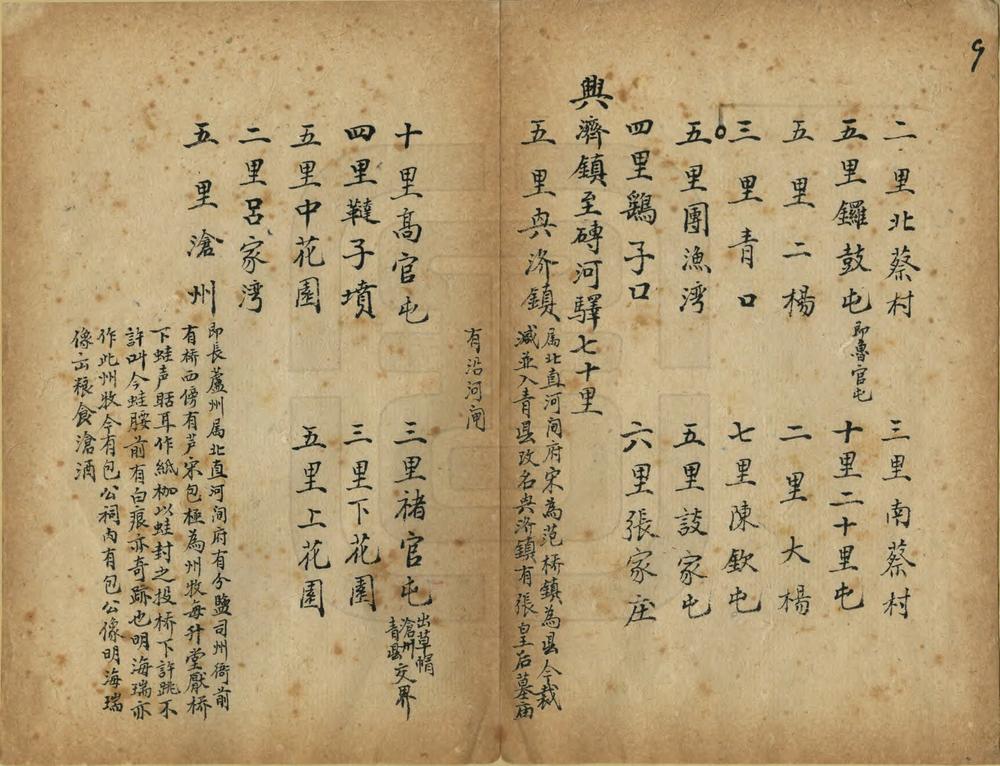 9
二里北蔡村 三里南蔡村
五里鑼鼓屯 即魯官屯 十里二十里屯
五里二楊 二里大楊
三里青口 七里陳欽屯
五里團漁湾 五里家屯
四里鷄子口 六里張家庄
興濟鎮至磚河驛七十里
五里興济鎮
属北直河间府宋為范桥鎮為县今裁
減並入青县改名興济鎮有張皇后墓庙
有沿河闸
十里高官屯 三里褚官屯
出草帽
滄州
青县交界
四里韃子墳 三里下花園
五里中花園 五里上花園
二里呂家湾
五里滄州
即長蘆州属北直河间府有分鹽司州衙前
有桥西傍有芦宋包極為州牧每升堂厭桥
下蛙声聒耳作紙枷以蛙封之投桥下許跳不
許叫今蛙腰前有白痕亦奇跡也明海瑞亦
作此州牧今有包公祠内有包公像明海瑞
像出粮食滄酒